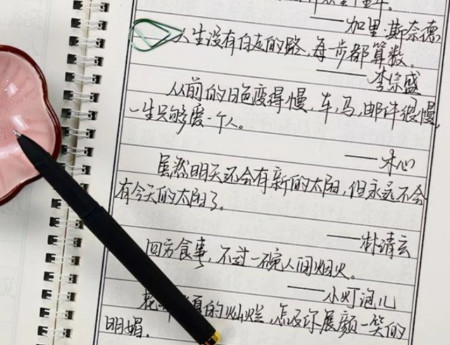 ——加里·斯奈德
人生没有白走的路，每步都算数。
——李宗盛
从前的日色变得慢，车，马，邮件很慢，
一生只够爱一个人。
——木心
虽然明天还会有新的太阳，但永远不会
有今天的太阳了。
——林清玄
四方食事，不过一碗人间烟火。
——小灯泡儿
的灿烂，怎及你展颜一笑的
明媚。